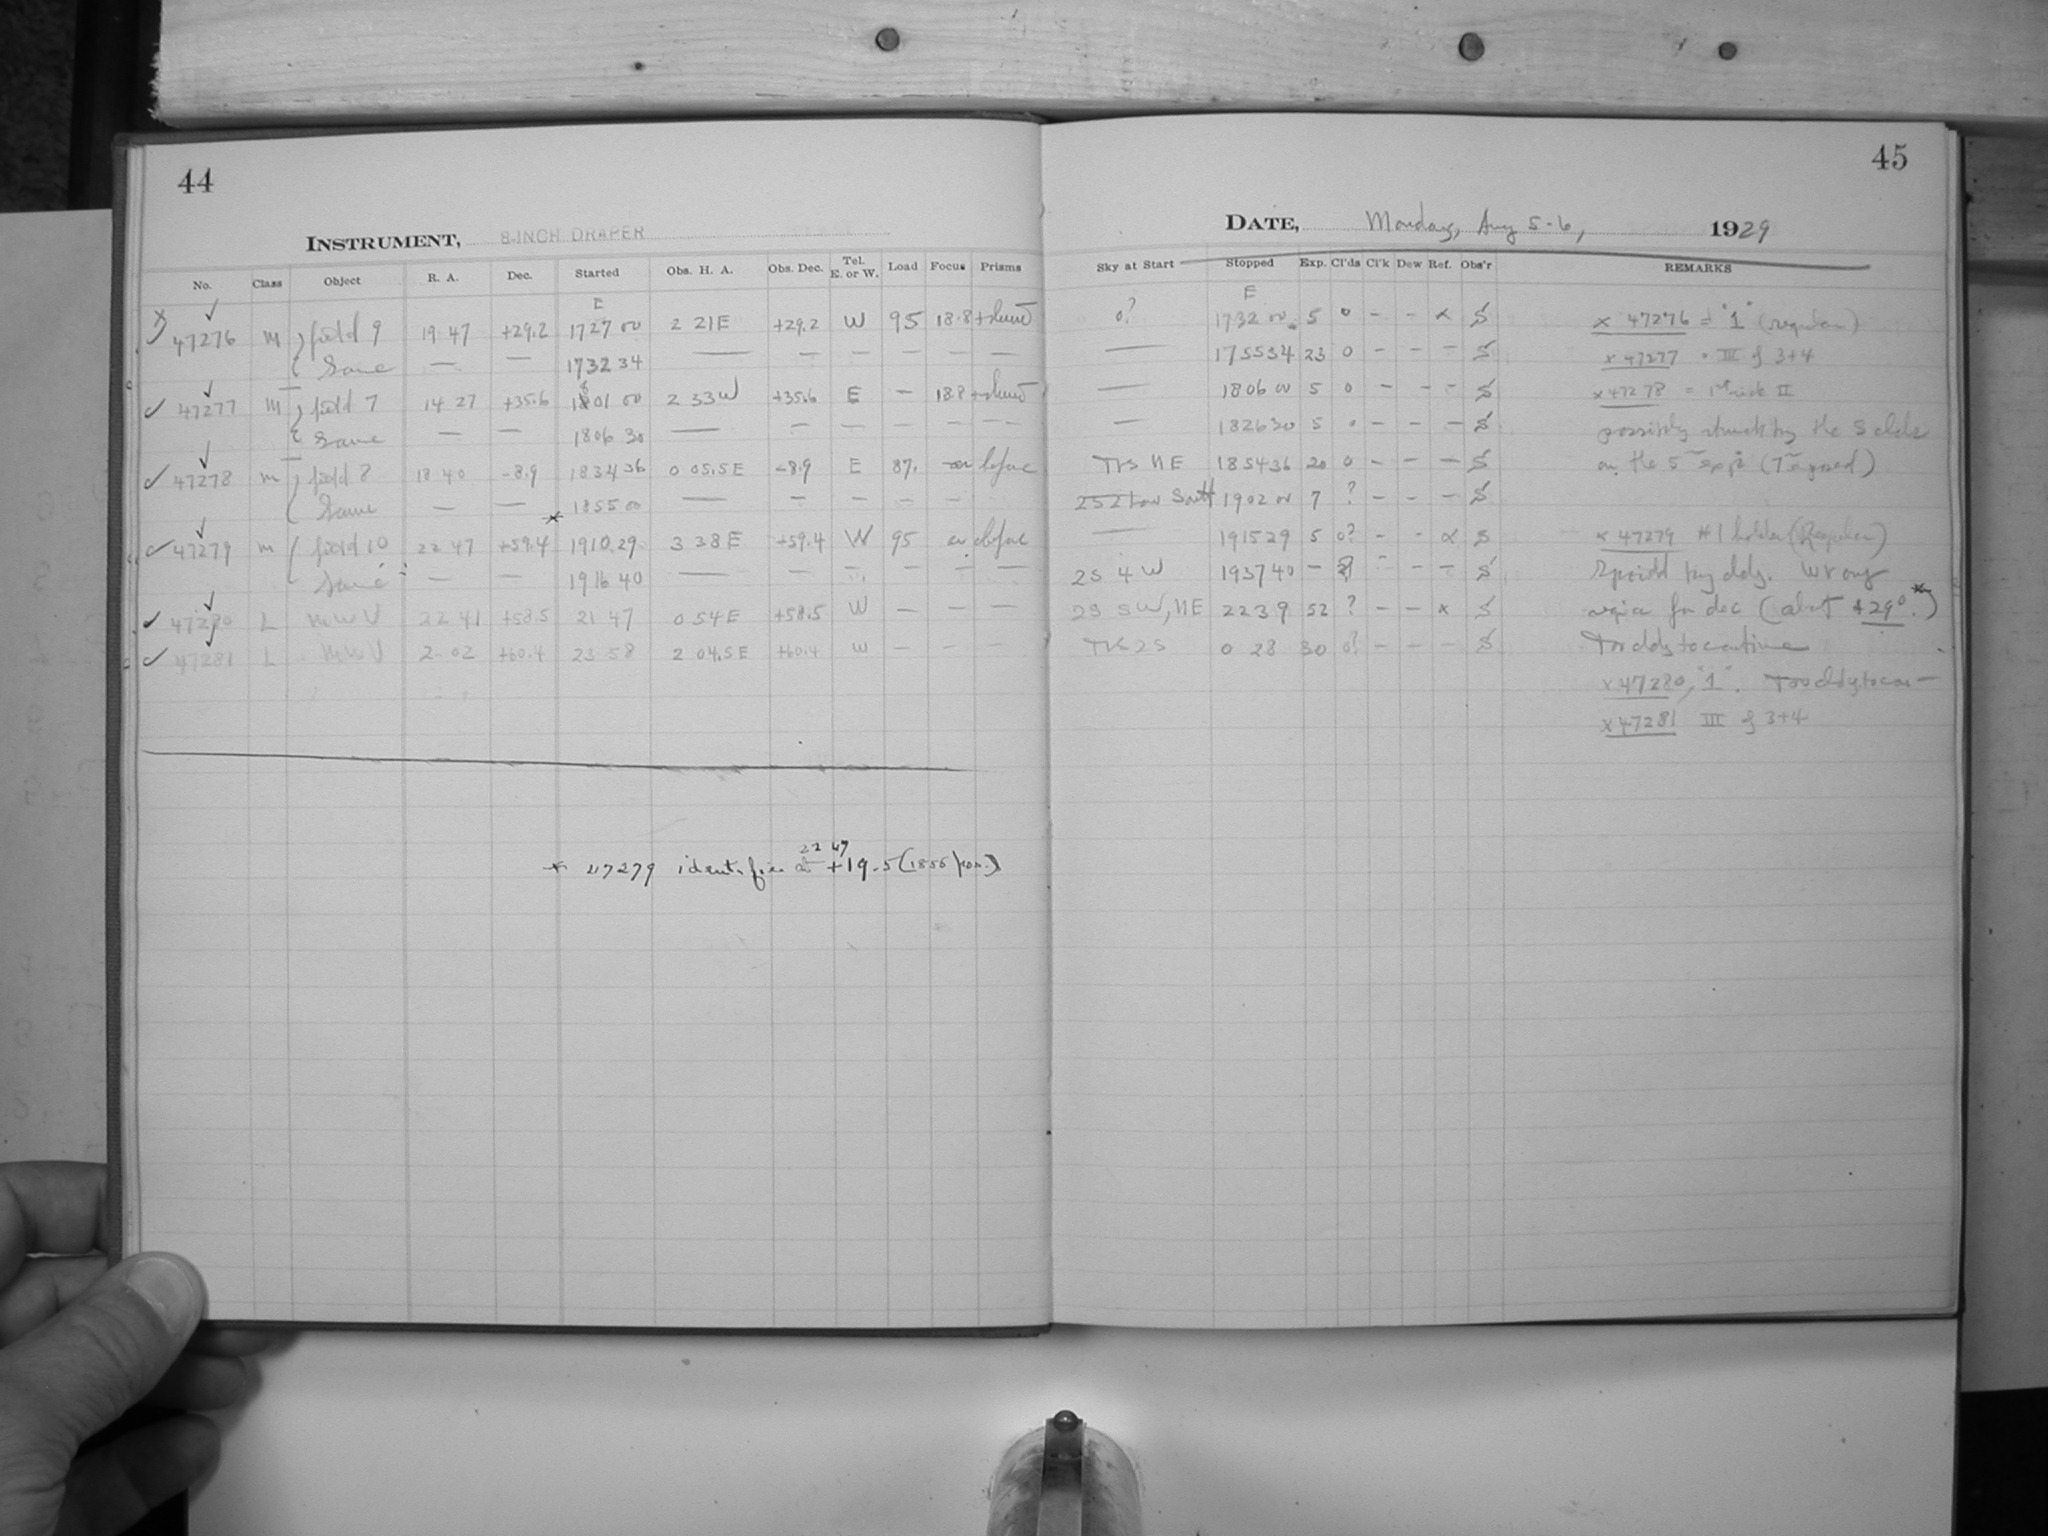 44
INSTRUMENT, 8-INCH DRAPER
No. Class Object R. A. Dec. Started Obs. H. A. Obs. Dec. Tel. E. or W. Load Focus Prisms
E
47276 m field 9 19 47 +29.2 1727 00 2 21E +29.2 W 95 18.8
Same — — 1732 34 — — — — — —
47277 m field 7 14 27 +35.6 1801 00 2 33W +35.6 E — 18.8
Same — — 1806 30 — — — — — —
47278 m field 8 18 40 -8.9 1834 36 0 05.5E -8.9 E 87. before
Same — — 1855 00 — — — — —
47279 m field 10 22 47 +59.4 1910.29 3 38E +59.4 W 95 before
Same — — * 1916 40 — — — — —
47280 L MWV 22 41 +58.5 21 47 0 54E +58.5 W — — —
47281 L MWV 2 02 +60.4 23 58 2 04.5E +60.4 W — — —
22 47
* 47279 identifies +19.5 (1855 pos.)
45
DATE, Monday, Aug 5-6, 1929
Sky at Start Stopped Exp. Cl'ds Cl'k Dew Ref. Obs'r REMARKS
E
0? 1732 00 5 0 - - x S x 47276 = "1" (regular)
— 175534 23 0 - - - S x 47277 = III of 3+4
— 1806 00 5 0 - - - S x 47278 = II
— 182630 5 0 - - - S possibly struck by the S clds
TKS NE 185436 20 0 - - - S on the 5
Low South 1902 00 7 ? - - - S
— 191529 5 0? - - x S x 47279 #1 holder (Regular)
2S 4 W 193740 - - - - S by clds. Wrong
2S SW, NE 2239 52 ? - - x S again for dec (abt +29°.*)
TKS 2S 0 28 30 0? - - - S Too cldy to continue
x 47280, "1". Too cldy to con—
x 47281 III of 3+4